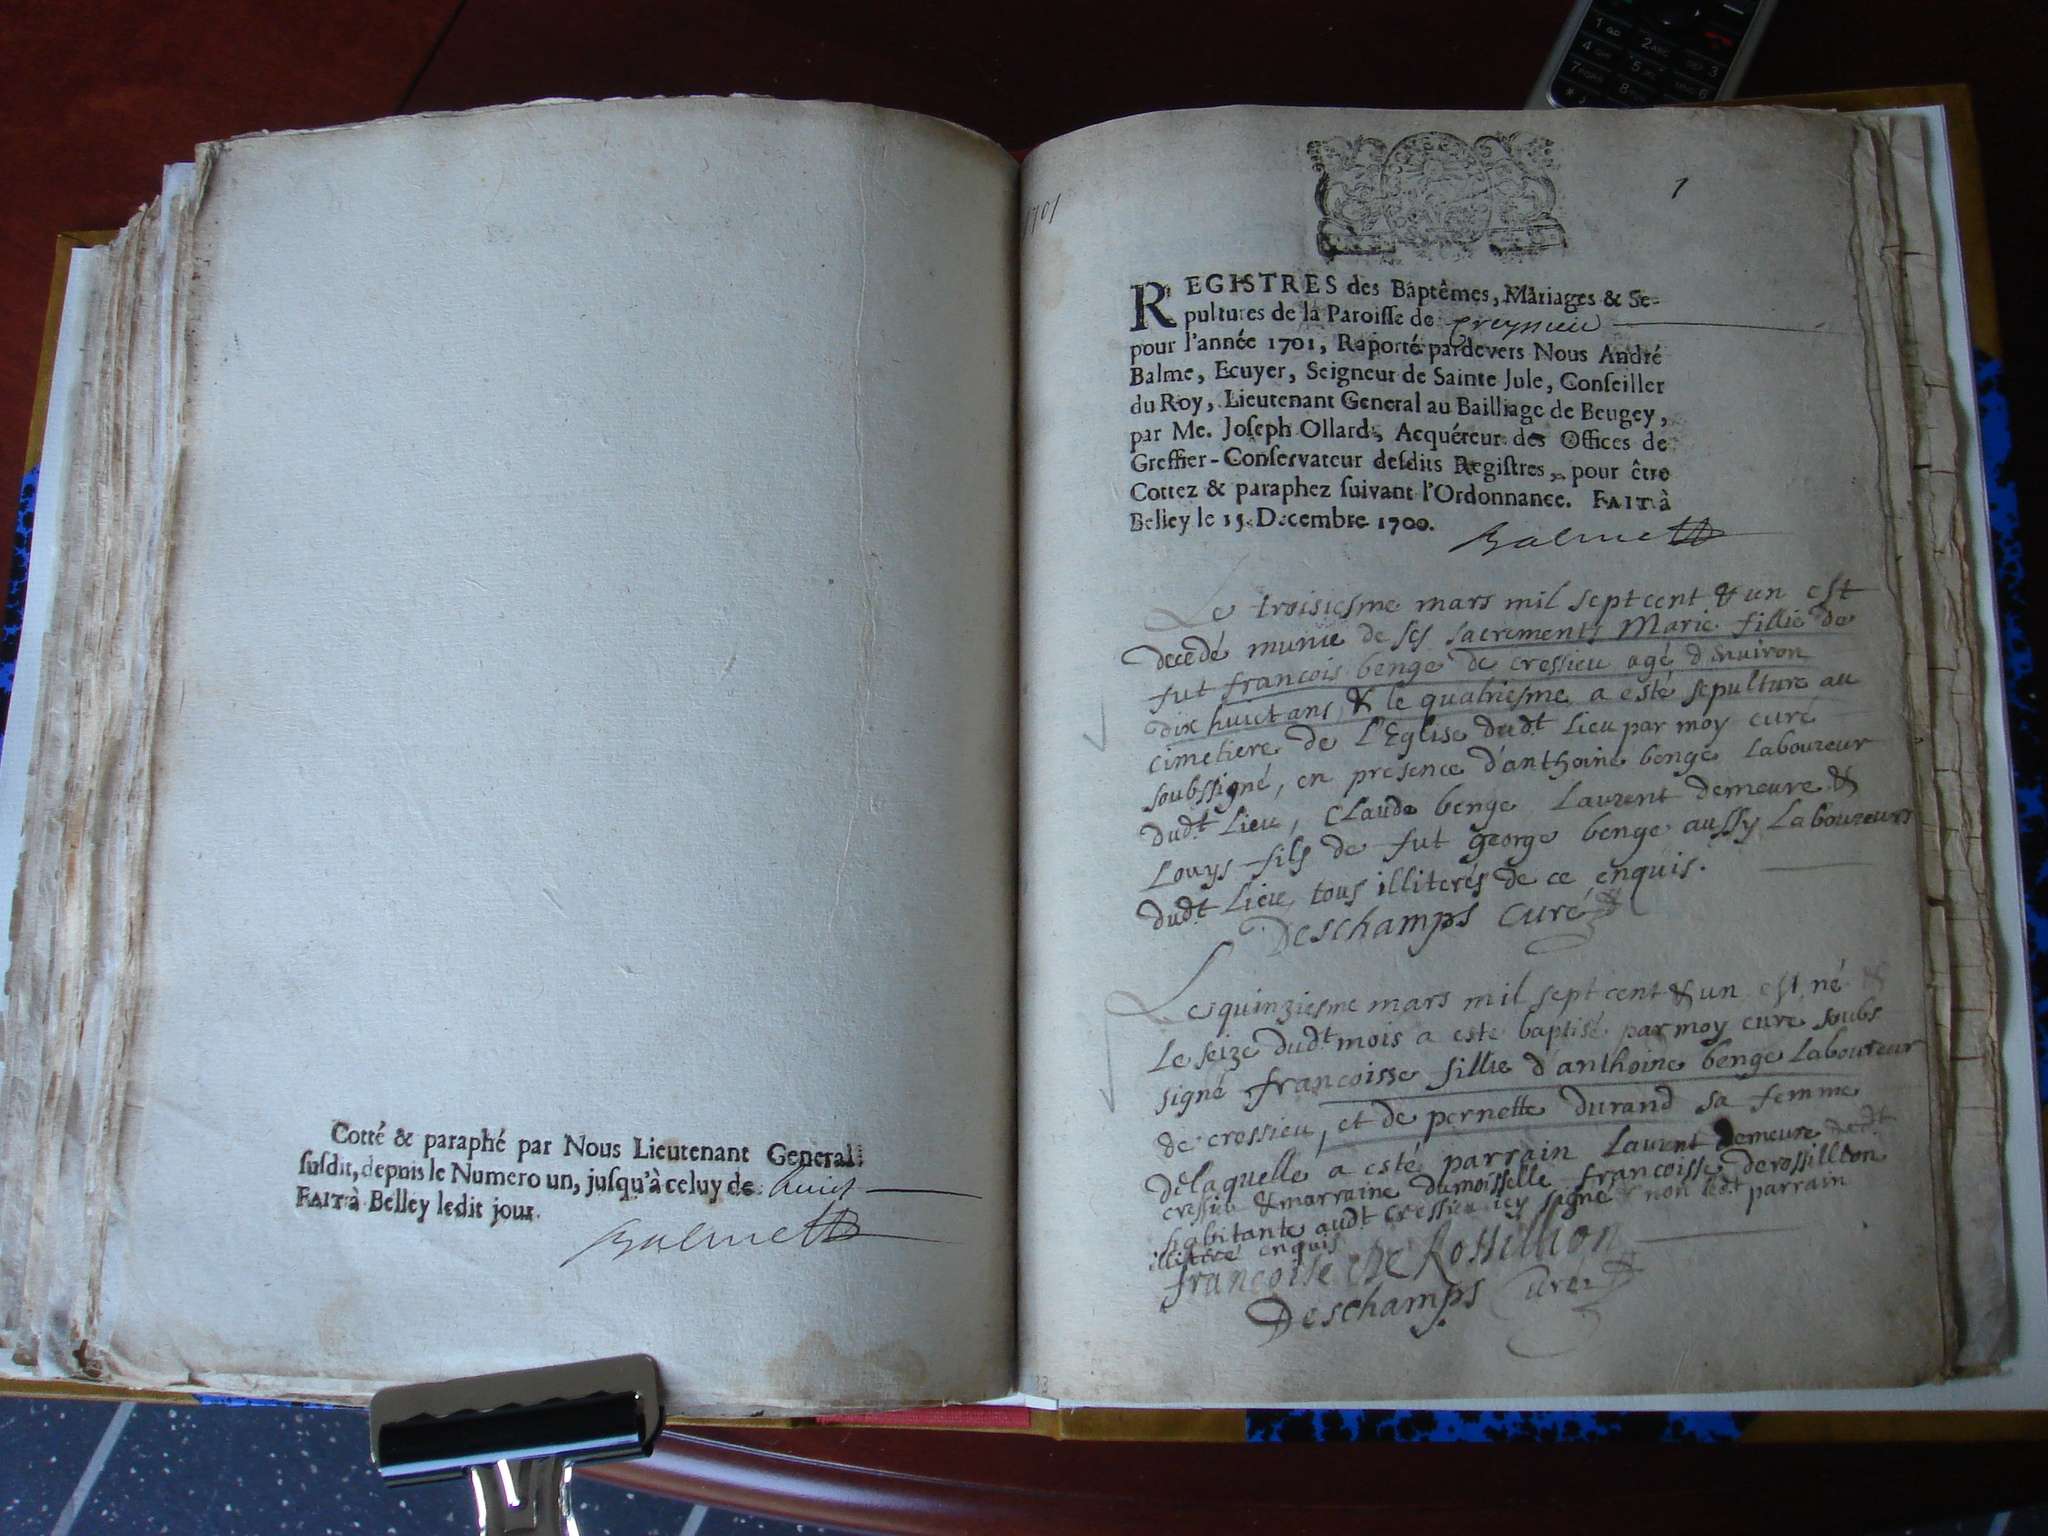 Cotté & paraphé par Nous Lieutenant General
susdit, depuis le Numero un, jusqu'à celuy de huict
FAIT à Belley ledit jour.
Balme
1701
1
REGISTRES des Baptêmes, Mariages & Se-
pultures de la Paroisse de Creyssieu
pour l'année 1701, Raporté pardevers Nous André
Balme, Ecuyer, Seigneur de Sainte Jule, Conseiller
du Roy, Lieutenant General au Bailliage de Beugey,
par Me. Joseph Ollard, Acquéreur des Offices de
Greffier-Conservateur desdits Registres, pour être
Cottez & paraphez suivant l'Ordonnance. FAIT à
Belley le 15. Decembre 1700.
Balme
Le troisiesme mars mil sept cent & un est
decedé munie de ses sacrements Marie fillie de
fut francois benge de cressieu agé d'environ
dix huict ans & le quatriesme a esté sepulture au
cimetiere de l'Eglise dudt lieu par moy curé
soubssigné, en presence d'anthoine benge laboureur
dudt lieu, Claude benge Laurent demeure &
Louys fils de fut george benge aussy laboureurs
dudt lieu tous illiterés de ce enquis.
Deschamps curé
Le quinziesme mars mil sept cent & un est né &
le seize dudt mois a esté baptisé par moy curé soubs
signé francoisse fillie d'anthoine benge laboureur
de cressieu, et de pernette durand sa femme
delaquelle a esté parrain Laurent demeure dudt
cressieu & marraine damoisselle francoisse de rossillion
habitante audt cressieu icy signé non ledt parrain
illiteré enquis
francoise De Rossillion
Deschamps Curé